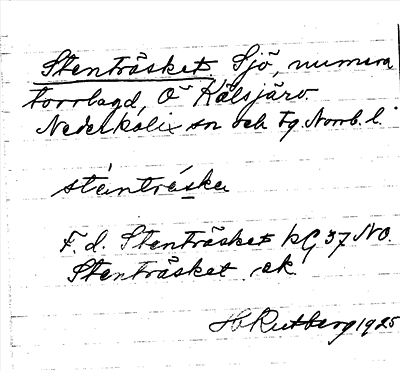 Stenträsket. Sjö, numera
torrlagd, O Kälsjärv.
Nederkalix sn och fg. Norrb. l.
stènträ́ska
F. d. Stenträsket kG 37 NO.
Stenträsket ek.
H Rutberg 1925